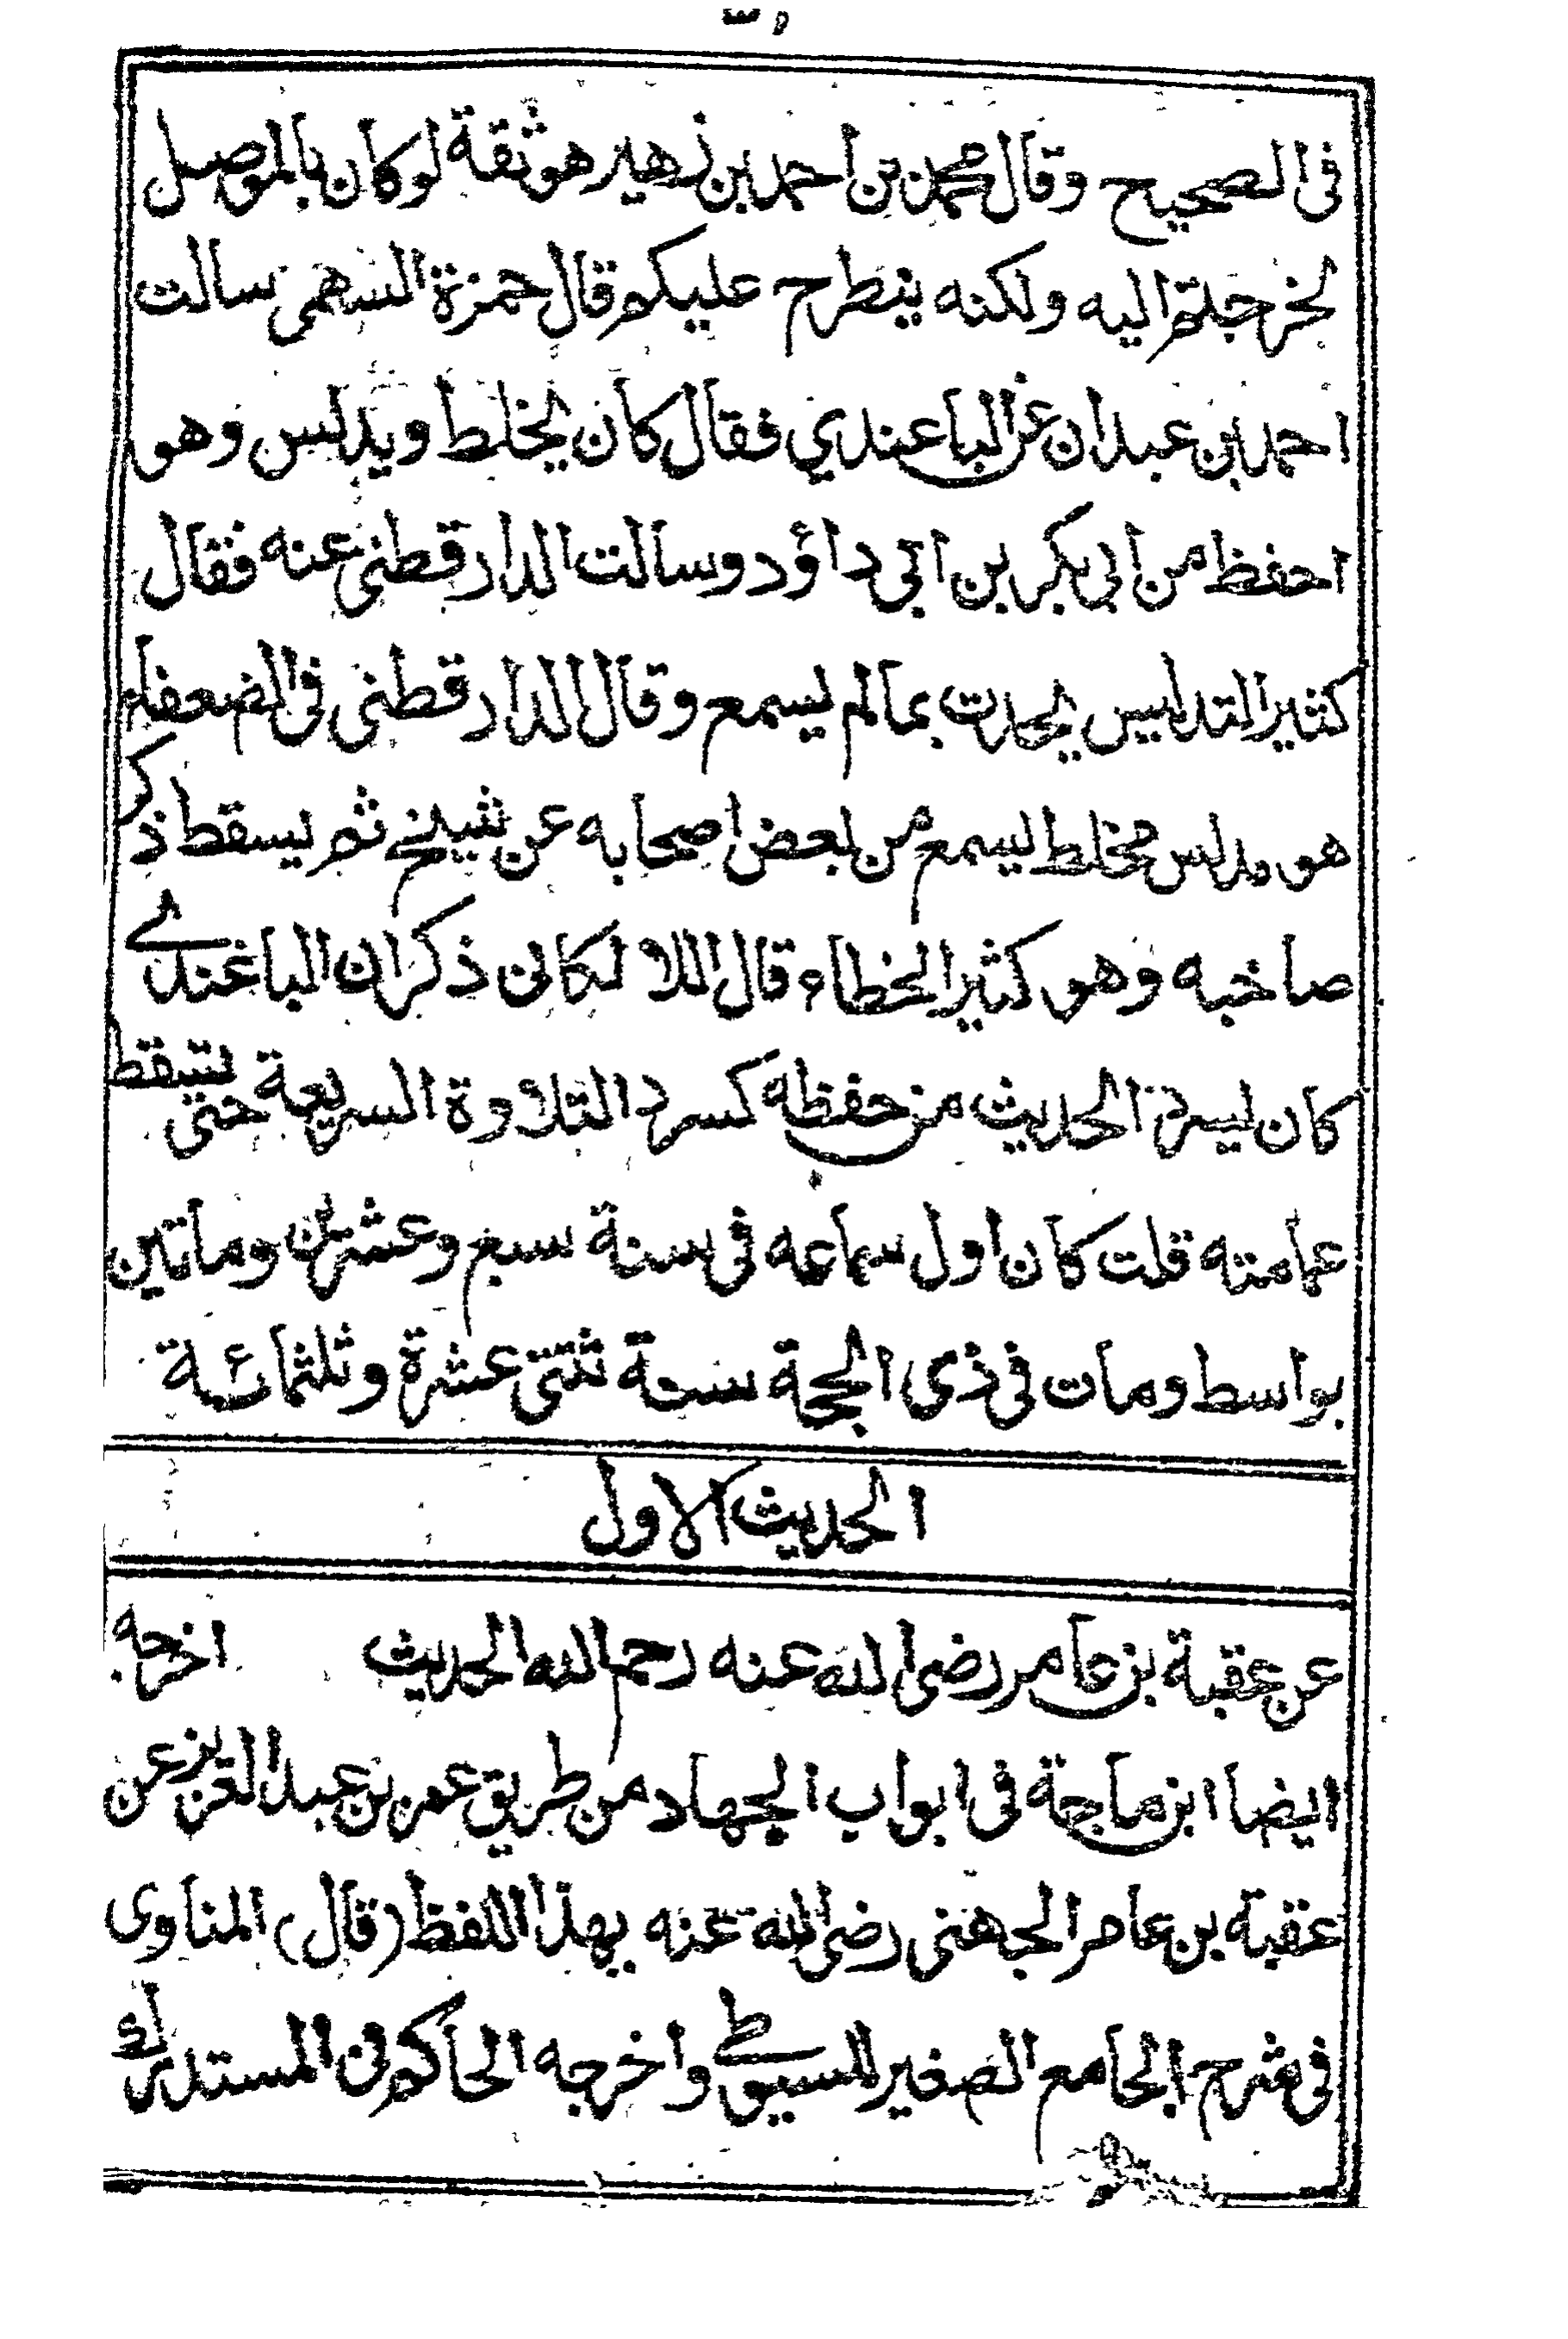 فى الصحيح وقال محمد بن احمد بن زهير هو ثقة لو كان بالموصل
لخرجتم اليه ولكنه ينطرح عليكم قال حمزة السهمى سالت
احمد بن عبدان عن الباغندي فقال كان يخلط ويدلس وهو
احفظ من ابى بكر بن ابى داؤد وسالت الدارقطنى عنه فقال
كثير التدليس يحدث بما لم يسمع وقال الدارقطنى فى الضعفاء
هو مدلس مخلط يسمع من بعض اصحابه عن شيخ ثم يسقط ذكر
صاحبه وهو كثير الخطاء قال اللالكائى ذكر ان الباغندے
كان يسرد الحديث من حفظه كسرد التلاوة السريعة حتى تسقط
عمامته قلت كان اول سماعه فى سنة سبع وعشرين ومأتين
بواسط ومات فى ذى الحجة سنة ثنتى عشرة وثلثمائة
الحديث الاول
عن عقبة بن عامر رضى الله عنه رحم الله الحديث اخرجه
ايضا ابن ماجة فى ابواب الجهاد من طريق عمر بن عبد العزيز عن
عقبة بن عامر الجهنى رضى الله عنه بهذا اللفظ (قال) المناوى
فى شرح الجامع الصغير للسيوطے واخرجه الحاكم فى المستدرك